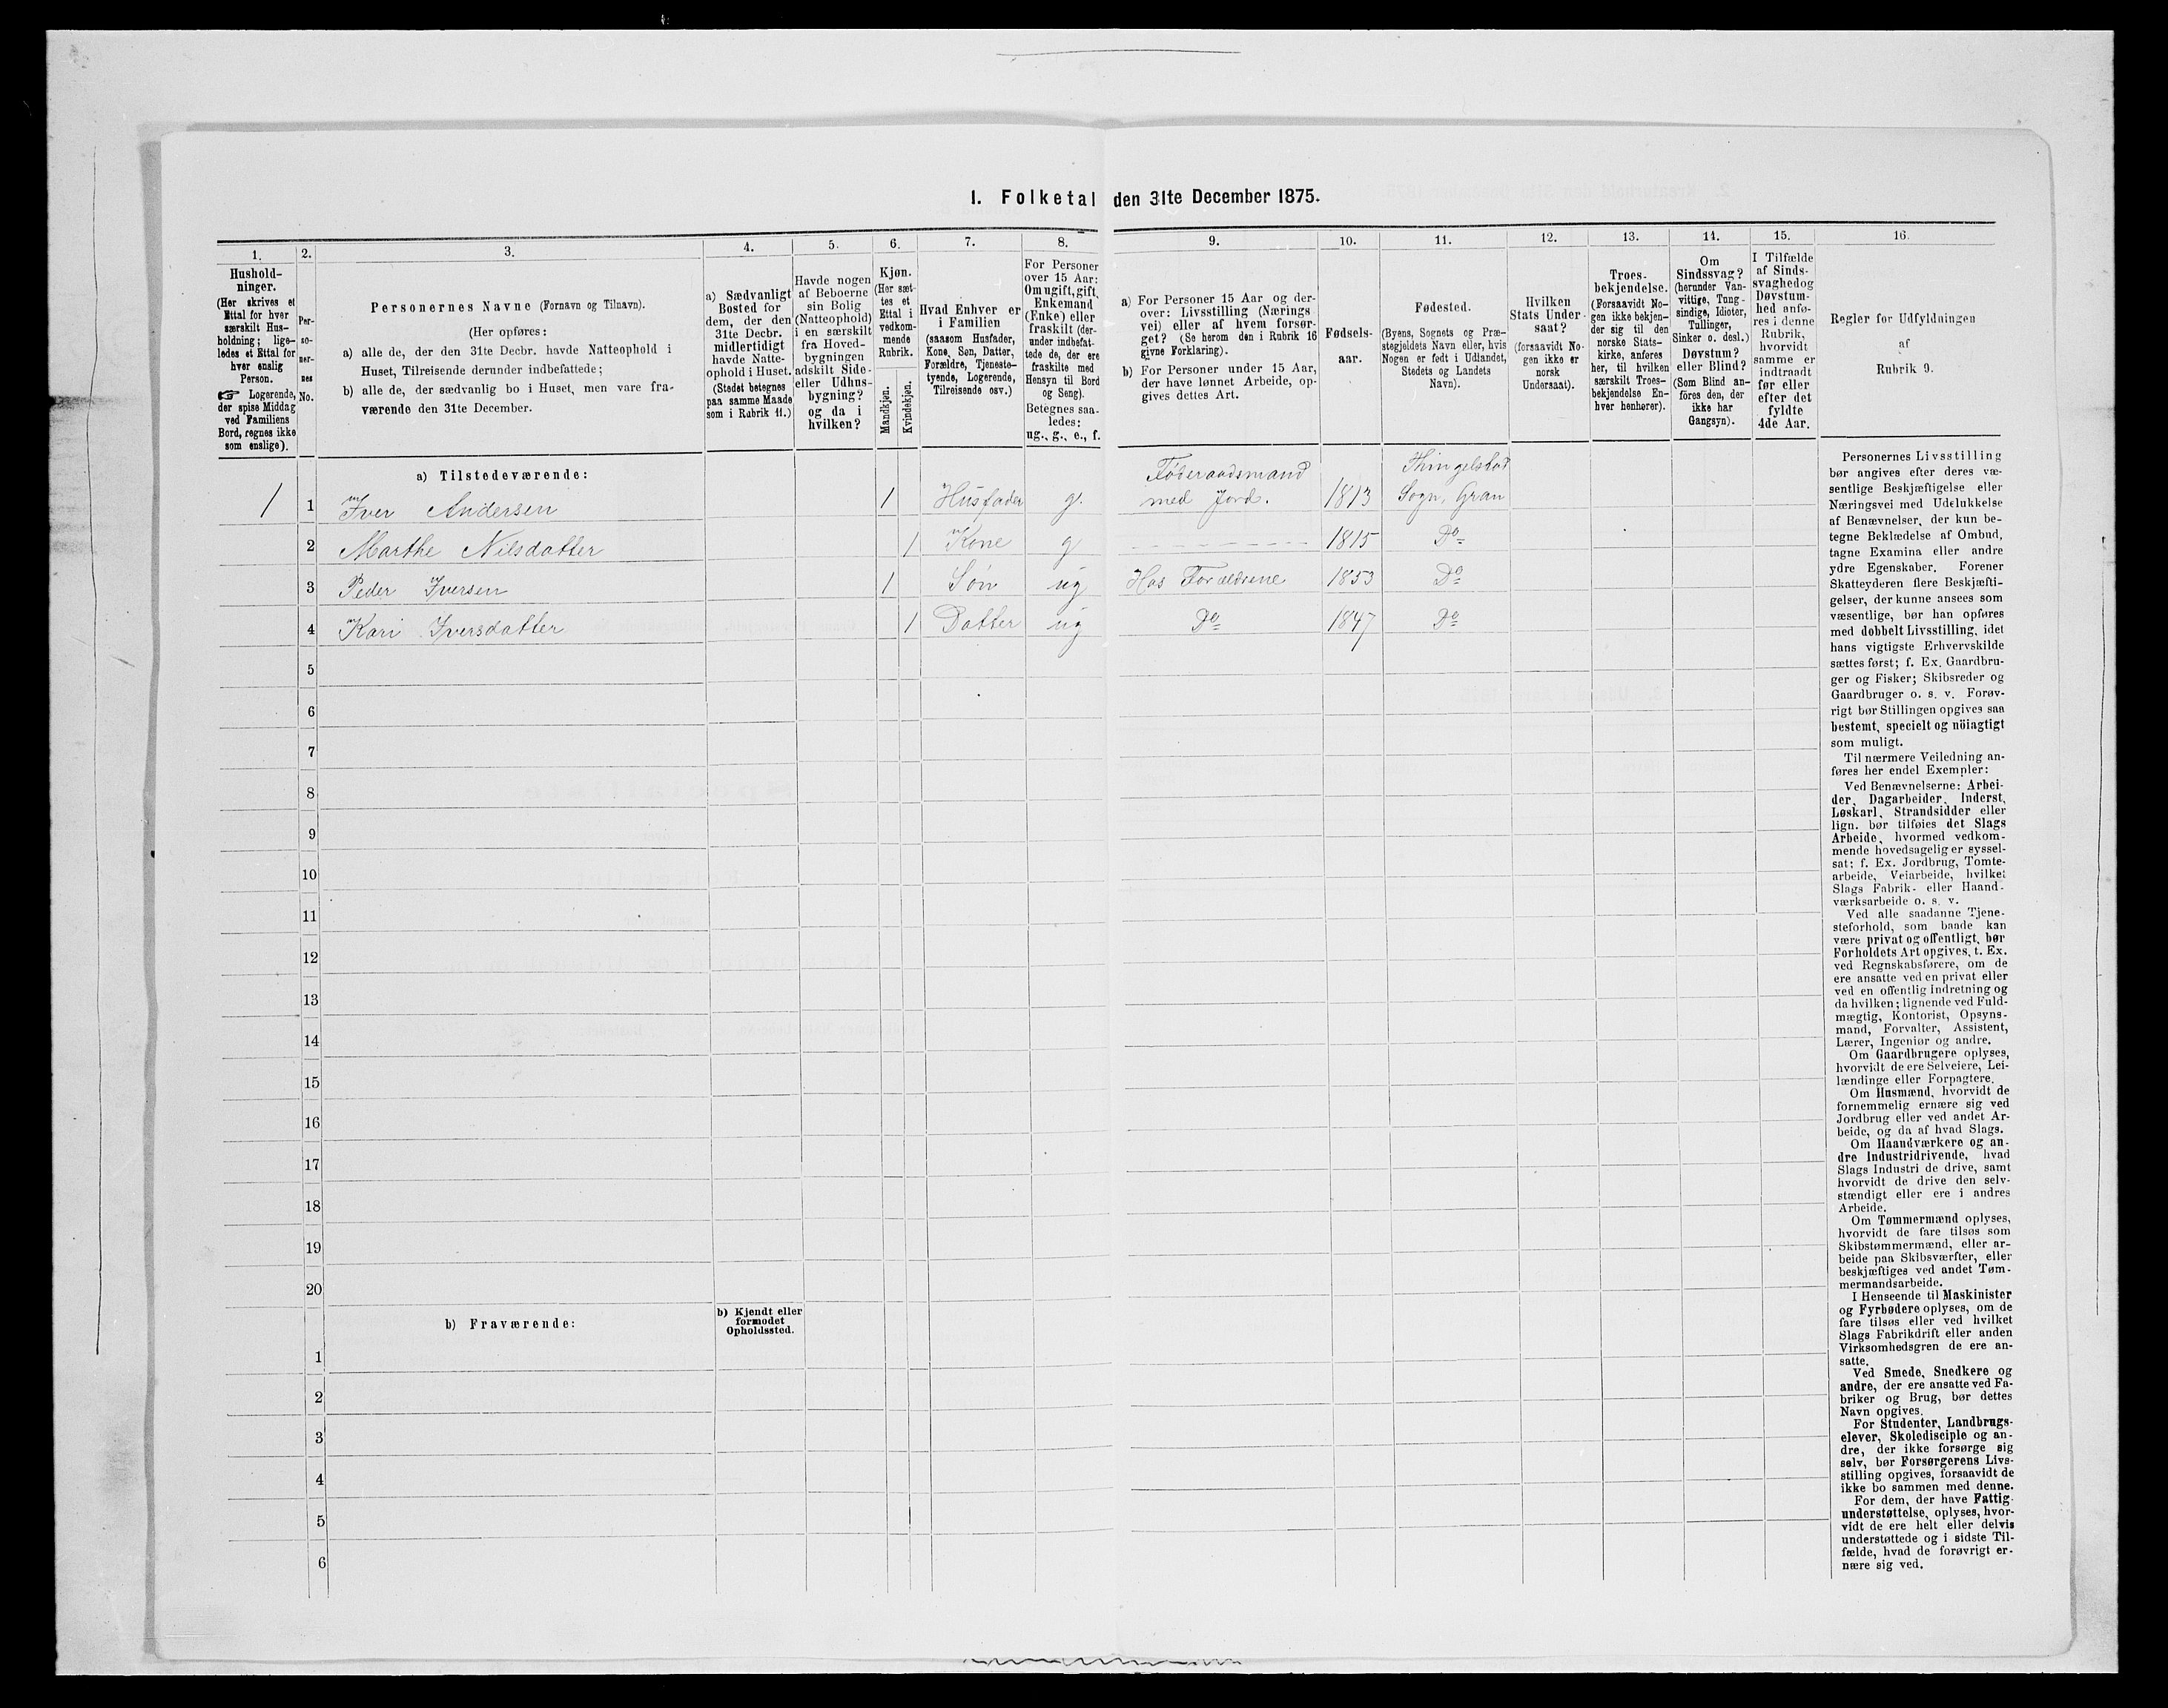 I. Folketal den 31te December 1875.
1.
Hushold-
ninger.
(Her skrives et
Ettal for hver
særskilt Hus-
holdning; lige-
ledes et Ettal for
hver enslig
Person.
☞ Logerende,
der spise Middag
ved Familiens
Bord, regnes ikke
som enslige).
2.
Per-
so-
ner-
nes
No.
3.
Personernes Navne (Fornavn og Tilnavn).
(Her opføres:
a) alle de, der den 31te Decbr. havde Natteophold i
Huset, Tilreisende derunder indbefattede;
b) alle de, der sædvanlig bo i Huset, men vare fra-
værende den 31te December.
4.
a) Sædvanligt
Bosted for
dem, der den
31te Decbr.
midlertidigt
havde Natte-
ophold i Huset.
(Stedet betegnes
paa samme Maade
som i Rubrik 11.)
5.
Havde nogen
af Beboerne
sin Bolig
(Natteophold)
i en særskilt
fra Hoved-
bygningen
adskilt Side-
eller Udhus-
bygning?
og da i
hvilken?
6.
Kjøn.
(Her sæt-
tes et
Ettal i
vedkom-
mende
Rubrik.
Mandkjøn.
Kvindekjøn.
7.
Hvad Enhver er
i Familien
(saasom Husfader,
Kone, Søn, Datter,
Forældre, Tjeneste-
tyende, Logerende,
Tilreisende osv.)
8.
For Personer
over 15 Aar:
Om ugift, gift,
Enkemand
(Enke) eller
fraskilt (der-
under indbefat-
tede de, der ere
fraskilte med
Hensyn til Bord
og Seng).
Betegnes saa-
ledes:
ug., g., e., f.
9.
a) For Personer 15 Aar og der-
over: Livsstilling (Nærings
vei) eller af hvem forsør-
get? (Se herom den i Rubrik 16
givne Forklaring).
b) For Personer under 15 Aar,
der have lønnet Arbeide, op-
gives dettes Art.
10.
Fødsels-
aar.
11.
Fødested.
(Byens, Sognets og Præ-
stegjeldets Navn eller, hvis
Nogen er født i Udlandet,
Stedets og Landets
Navn).
12.
Hvilken
Stats Under-
saat?
(forsaavidt No-
gen ikke er
norsk
Undersaat).
13.
Troes-
bekjendelse.
(Forsaavidt No-
gen ikke bekjen-
der sig til den
norske Stats-
kirke, anføres
her, til hvilken
særskilt Troes-
bekjendelse En-
hver henhører).
14.
Om
Sindssvag?
(herunder Van-
vittige, Tung-
sindige, Idioter,
Tullinger,
Sinker o. desl.)
Døvstum?
eller Blind?
(Som Blind an-
föres den, der
ikke har
Gangsyn).
15.
I Tilfælde
af Sinds-
svaghed og
Døvstum-
hed anfø-
res i denne
Rubrik,
hvorvidt
samme er
indtraadt
før eller
efter det
fyldte
4de Aar.
16.
Regler for Udfyldningen
af
Rubrik 9.
a) Tilstedeværende:
1 1 Iver Andersen 1 Husfader g. Føderaadsmand med Jord. 1813 Thingelstad Sogn, Gran
2 Marthe Nilsdatter 1 Kone g 1815 Do
3 Peder Iversen 1 Søn ug Hos Forældrene 1853 Do
4 Kari Iversdatter 1 Datter ug Do 1847 Do
5
6
7
8
9
10
11
12
13
14
15
16
17
18
19
20
b) Fraværende:
b) Kjendt eller
formodet
Opholdssted.
1
2
3
4
5
6
Personernes Livsstilling
bør angives efter deres væ-
sentlige Beskjæftigelse eller
Næringsvei med Udelukkelse
af Benævnelser, der kun be-
tegne Beklædelse af Ombud,
tagne Examina eller andre
ydre Egenskaber. Forener
Skatteyderen flere Beskjæfti-
gelser, der kunne ansees som
væsentlige, bør han opføres
med dobbelt Livsstilling, idet
hans vigtigste Erhvervskilde
sættes først; f. Ex. Gaardbru-
ger og Fisker; Skibsreder og
Gaardbruger o. s. v. Forøv-
rigt bør Stillingen opgives saa
bestemt, specielt og nöiagtigt
som muligt.
Til nærmere Veiledning an-
føres her endel Exempler:
Ved Benævnelserne: Arbei-
der, Dagarbeider, Inderst,
Løskarl, Strandsidder eller
lign. bør tilføies det Slags
Arbeide, hvormed vedkom-
mende hovedsagelig er syssel-
sat; f. Ex. Jordbrug, Tomte-
arbeide, Veiarbeide, hvilket
Slags Fabrik- eller Haand-
værksarbeide o. s. v.
Ved alle saadanne Tjene-
steforhold, som baade kan
være privat og offentligt, bør
Forholdets Art opgives, t. Ex.
ved Regnskabsførere, om de
ere ansatte ved en privat eller
ved en offentlig Indretning og
da hvilken; lignende ved Fuld-
mægtig, Kontorist, Opsyns-
mand, Forvalter, Assistent,
Lærer, Ingeniør og andre.
Om Gaardbrugere oplyses,
hvorvidt de ere Selveiere, Lei-
lændinge eller Forpagtere.
Om Husmænd, hvorvidt de
fornemmelig ernære sig ved
Jordbrug eller ved andet Ar-
beide, og da af hvad Slags.
Om Haandværkere og an-
dre Industridrivende, hvad
Slags Industri de drive, samt
hvorvidt de drive den selv-
stændigt eller ere i andres
Arbeide.
Om Tømmermænd oplyses,
hvorvidt de fare tilsøs som
Skibstømmermænd, eller ar-
beide paa Skibsværfter, eller
beskjæftiges ved andet Tøm-
mermandsarbeide.
I Henseende til Maskinister
og Fyrbødere oplyses, om de
fare tilsøs eller ved hvilket
Slags Fabrikdrift eller anden
Virksomhedsgren de ere an-
satte.
Ved Smede, Snedkere og
andre, der ere ansatte ved Fa-
briker og Brug, bør dettes
Navn opgives.
For Studenter, Landbrugs-
elever, Skoledisciple og an-
dre, der ikke forsørge sig
selv, bør Forsørgerens Livs-
stilling opgives, forsaavidt de
ikke bo sammen med denne.
For dem, der have Fattig-
understøttelse, oplyses, hvor-
vidt de ere helt eller delvis
understøttede og i sidste Til-
fælde, hvad de forøvrigt er-
nære sig ved.